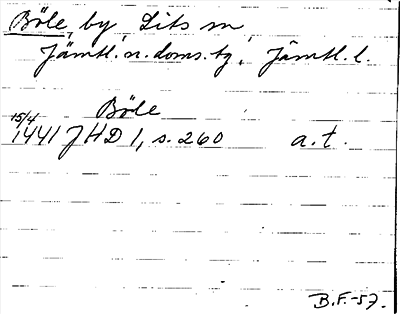 Böle, by Lits sn
Jämtl. n. doms. tg. Jämtl. l.
Böle
15/4
1441 JHD 1, s. 260 a. t.
B.F.-57.